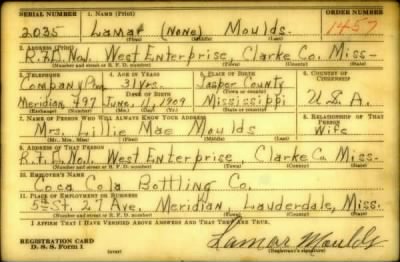 SERIAL NUMBER 1. NAME (Print) ORDER NUMBER
2035 Lamar (None) Moulds. 1457
(First) (Middle) (Last)
2. ADDRESS (Print)
R.F.D. No.1. West Enterprise Clarke Co. Miss-
(Number and street or R. F. D. number) (Town) (County) (State)
3. TELEPHONE 4. AGE IN YEARS 5. PLACE OF BIRTH 6. COUNTRY OF CITIZENSHIP
Company Phone 31 Yrs. Jasper County
DATE OF BIRTH
Meridian 797 June, 1, 1909 Mississippi U.S.A.
(Exchange) (Number) (Mo.) (Day) (Yr.) (State or country)
7. NAME OF PERSON WHO WILL ALWAYS KNOW YOUR ADDRESS 8. RELATIONSHIP OF THAT PERSON
Mrs. Lillie Mae Moulds Wife
(Mr., Mrs., Miss) (First) (Middle) (Last)
9. ADDRESS OF THAT PERSON
R.F.D. No.1. West Enterprise Clarke Co. Miss.
(Number and street or R. F. D. number) (Town) (County) (State)
10. EMPLOYER'S NAME
Coca Cola Bottling Co.
11. PLACE OF EMPLOYMENT OR BUSINESS
5th St. 27 Ave. Meridian, Lauderdale, Miss.
(Number and street or R. F. D. number) (Town) (County) (State)
I AFFIRM THAT I HAVE VERIFIED ABOVE ANSWERS AND THAT THEY ARE TRUE.
REGISTRATION CARD
D. S. S. Form 1 (over) Lamar Moulds
(Registrant's signature)